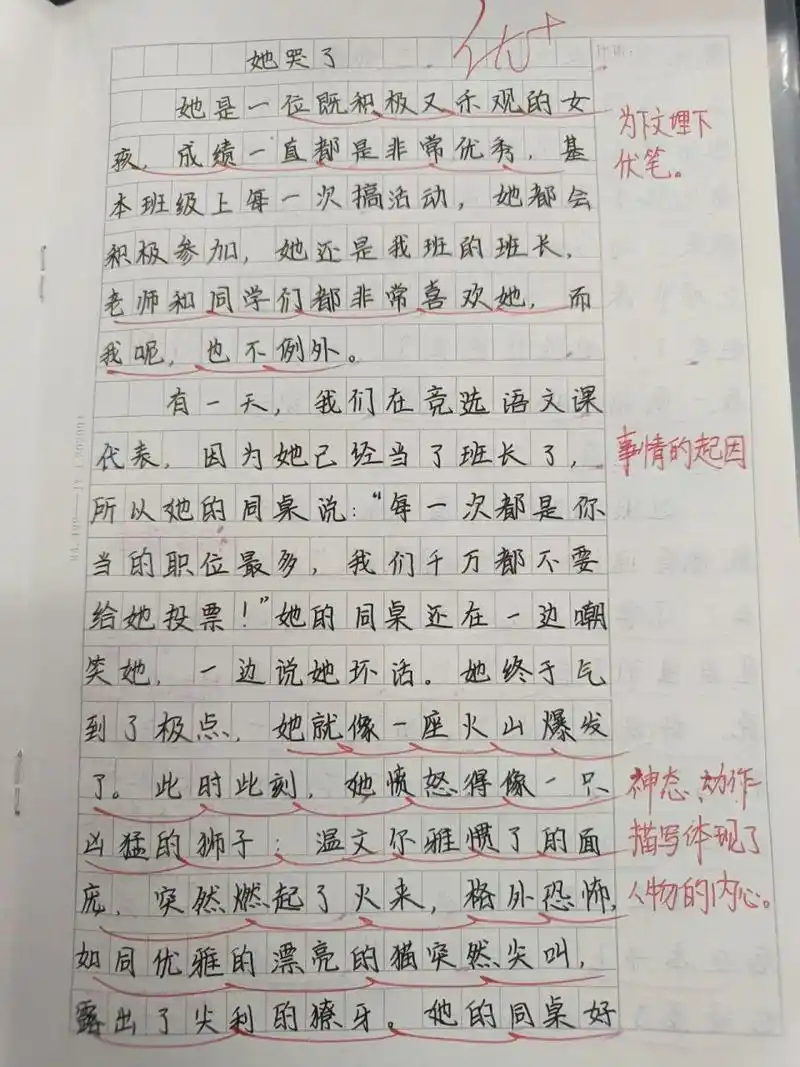 她哭了
优+
她是一位既积极又乐观的女
孩，成绩一直都是非常优秀，基
本班级上每一次搞活动，她都会
积极参加，她还是我班的班长，
老师和同学们都非常喜欢她，而
我呢，也不例外。
为下文埋下
伏笔。
有一天，我们在竞选语文课
代表，因为她已经当了班长了，
所以她的同桌说：“每一次都是你
当的职位最多，我们千万都不要
给她投票！”她的同桌还在一边嘲
笑她，一边说她坏话。她终于气
到了极点，她就像一座火山爆发
了。此时此刻，她愤怒得像一只
凶猛的狮子：温文尔雅惯了的面
庞，突然燃起了火来，格外恐怖，
如同优雅的漂亮的猫突然尖叫，
露出了尖利的獠牙。她的同桌好
事情的起因
神态、动作
描写体现了
人物的内心。